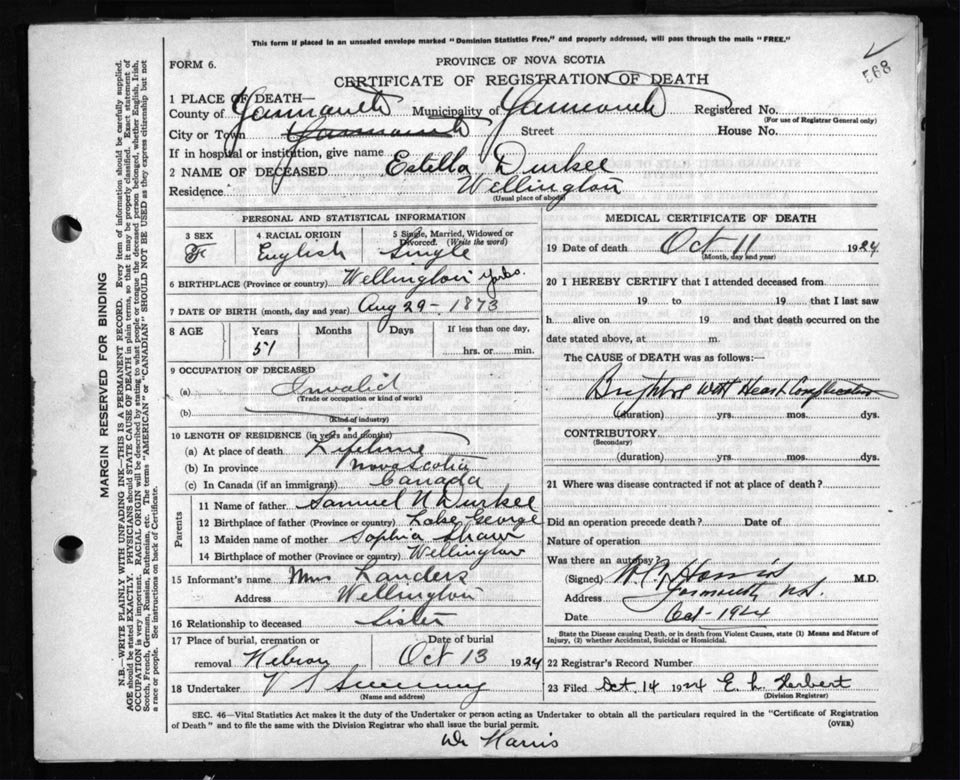 This form if placed in an unsealed envelope marked "Dominion Statistics Free," and properly addressed, will pass through the mails "FREE."
568
FORM 6.
PROVINCE OF NOVA SCOTIA
CERTIFICATE OF REGISTRATION OF DEATH
1 PLACE OF DEATH—
County of Yarmouth Municipality of Yarmouth Registered No.
(For use of Registrar General only)
City or Town Yarmouth Street House No.
If in hospital or institution, give name
2 NAME OF DECEASED Estella Durkee
Residence Wellington
(Usual place of abode)
PERSONAL AND STATISTICAL INFORMATION
3 SEX 4 RACIAL ORIGIN 5 Single, Married, Widowed or Divorced. (Write the word)
F English Single
6 BIRTHPLACE (Province or country) Wellington
7 DATE OF BIRTH (month, day and year) Aug 29 - 1873
8 AGE Years Months Days If less than one day,
51 hrs. or min.
9 OCCUPATION OF DECEASED
(a) Invalid
(Trade or occupation or kind of work)
(b)
(Kind of industry)
10 LENGTH OF RESIDENCE (in years and months)
(a) At place of death Lifetime
(b) In province Nova Scotia
(c) In Canada (if an immigrant) Canada
Parents
11 Name of father Samuel N Durkee
12 Birthplace of father (Province or country) Lake George
13 Maiden name of mother Sophia Shaw
14 Birthplace of mother (Province or country) Wellington
15 Informant's name Mrs Landers
Address Wellington
16 Relationship to deceased Sister
17 Place of burial, cremation or Date of burial
removal Hebron Oct 13 1924
18 Undertaker V S Sweeny
(Name and address)
MEDICAL CERTIFICATE OF DEATH
19 Date of death Oct 11 1924
(Month, day and year)
20 I HEREBY CERTIFY that I attended deceased from
19 to 19 that I last saw
h alive on 19 and that death occurred on the
date stated above, at m.
The CAUSE OF DEATH was as follows:—
Brights with Heart Complication
(duration) yrs. mos. dys.
CONTRIBUTORY
(Secondary)
(duration) yrs. mos. dys.
21 Where was disease contracted if not at place of death?
Did an operation precede death? Date of
Nature of operation
Was there an autopsy?
(Signed) Harris M.D.
Address Yarmouth N.S.
Date Oct - 1924
State the Disease causing Death, or in death from Violent Causes, state (1) Means and Nature of
Injury, (2) whether Accidental, Suicidal or Homicidal.
22 Registrar's Record Number
23 Filed Oct. 14 1924 E. L. Herbert
(Division Registrar)
SEC. 46—Vital Statistics Act makes it the duty of the Undertaker or person acting as Undertaker to obtain all the particulars required in the "Certificate of Registration
of Death" and to file the same with the Division Registrar who shall issue the burial permit. (OVER)
Dr Harris
MARGIN RESERVED FOR BINDING
N.B.—WRITE PLAINLY WITH UNFADING INK—THIS IS A PERMANENT RECORD. Every item of information should be carefully supplied.
AGE should be stated EXACTLY. PHYSICIANS should STATE CAUSE OF DEATH in plain terms, so that it may be properly classified. Exact statement of
OCCUPATION is very important. RACIAL ORIGIN will be described by stating to what people or tongue the deceased person belonged, whether English, Irish,
Scotch, French, German, Russian, Ruthenian, etc. The terms "AMERICAN" or "CANADIAN" SHOULD NOT BE USED as they express citizenship but not
a race or people. See instructions on back of Certificate.